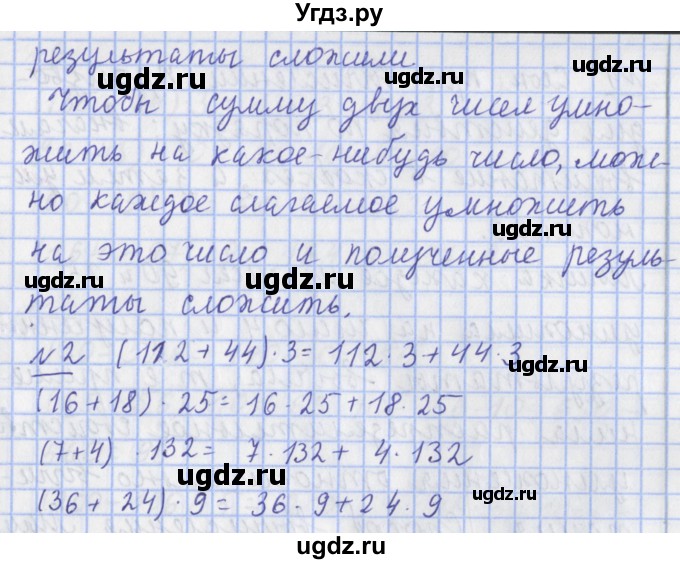 Угдз.ру
результаты сложили.
Чтобы сумму двух чисел умно-
жить на какое-нибудь число, мож-
но каждое слагаемое умножить
на это число и полученные резуль-
таты сложить.
№2 (112+44)·3=112·3+44·3
(16+18)·25=16·25+18·25
(7+4)·132=7·132+4·132
(36+24)·9=36·9+24·9
ugdz.ru
ugdz.ru
ugdz.ru
ugdz.ru
ugdz.ru
ugdz.ru
ugdz.ru
ugdz.ru
ugdz.ru
ugdz.ru
ugdz.ru